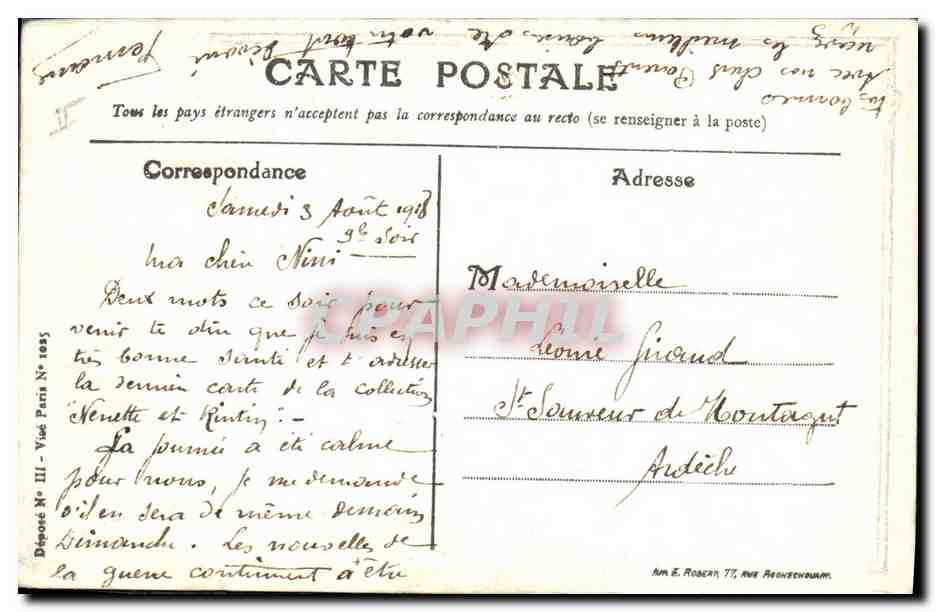 CARTE POSTALE
Tous les pays étrangers n'acceptent pas la correspondance au recto (se renseigner à la poste)
Correspondance
Samedi 3 Août 1918
9h Soir
Ma chère Nini
Deux mots ce soir pour
venir te dire que je suis en
très bonne santé et t'adresser
la dernière carte de la collection
"Nénette et Rintin". -
La journée a été calme
pour nous, je me demande
s'il en sera de même demain
Dimanche. Les nouvelles de
la guerre continuent à être
très bonnes
Avec nos chers Parents
reçois les meilleurs baisers de
votre tout dévoué
Fernand
Adresse
Mademoiselle
Léonie Giraud
St Sauveur de Montagut
Ardèche
Déposé No III - Visé Paris No 1035
IMP. E. ROBERT, 77, RUE ROCHECHOUART.
CPAPHIL